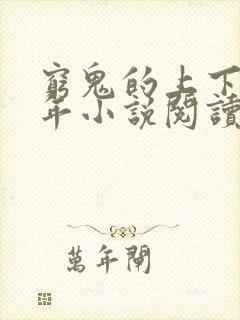 窮鬼的上下
年小說閱讀
萬年閘